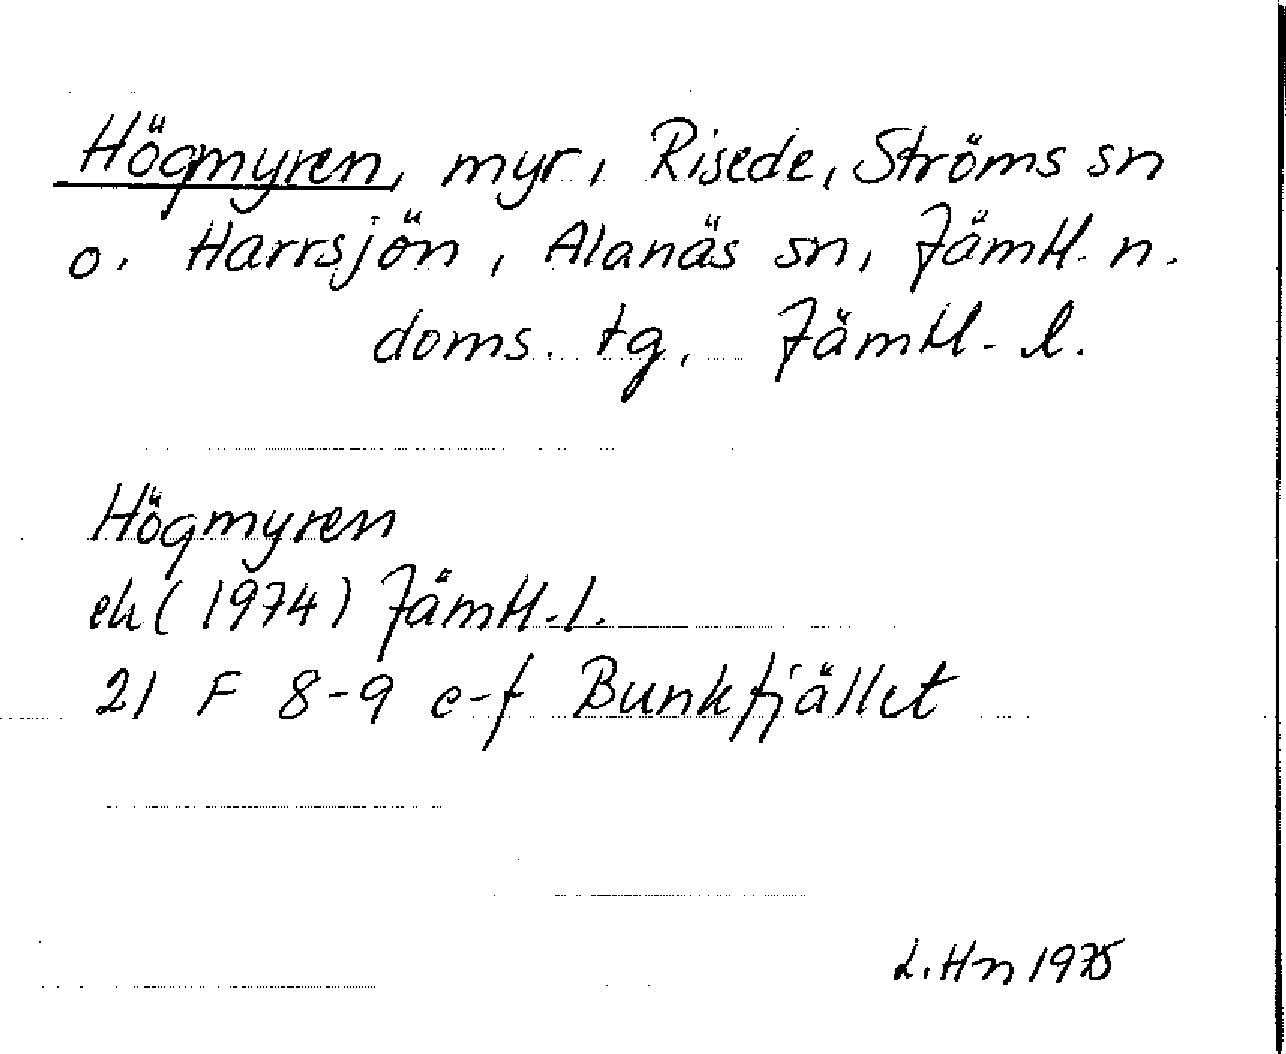 Högmyren, myr, Risede, Ströms sn
o. Harrsjön, Alanäs sn, Jämtl. n.
doms. tg, Jämtl. l.
Högmyren
ek (1974) Jämtl. l.
21 F 8-9 e-f Bunkfjället
L. Hn 1975